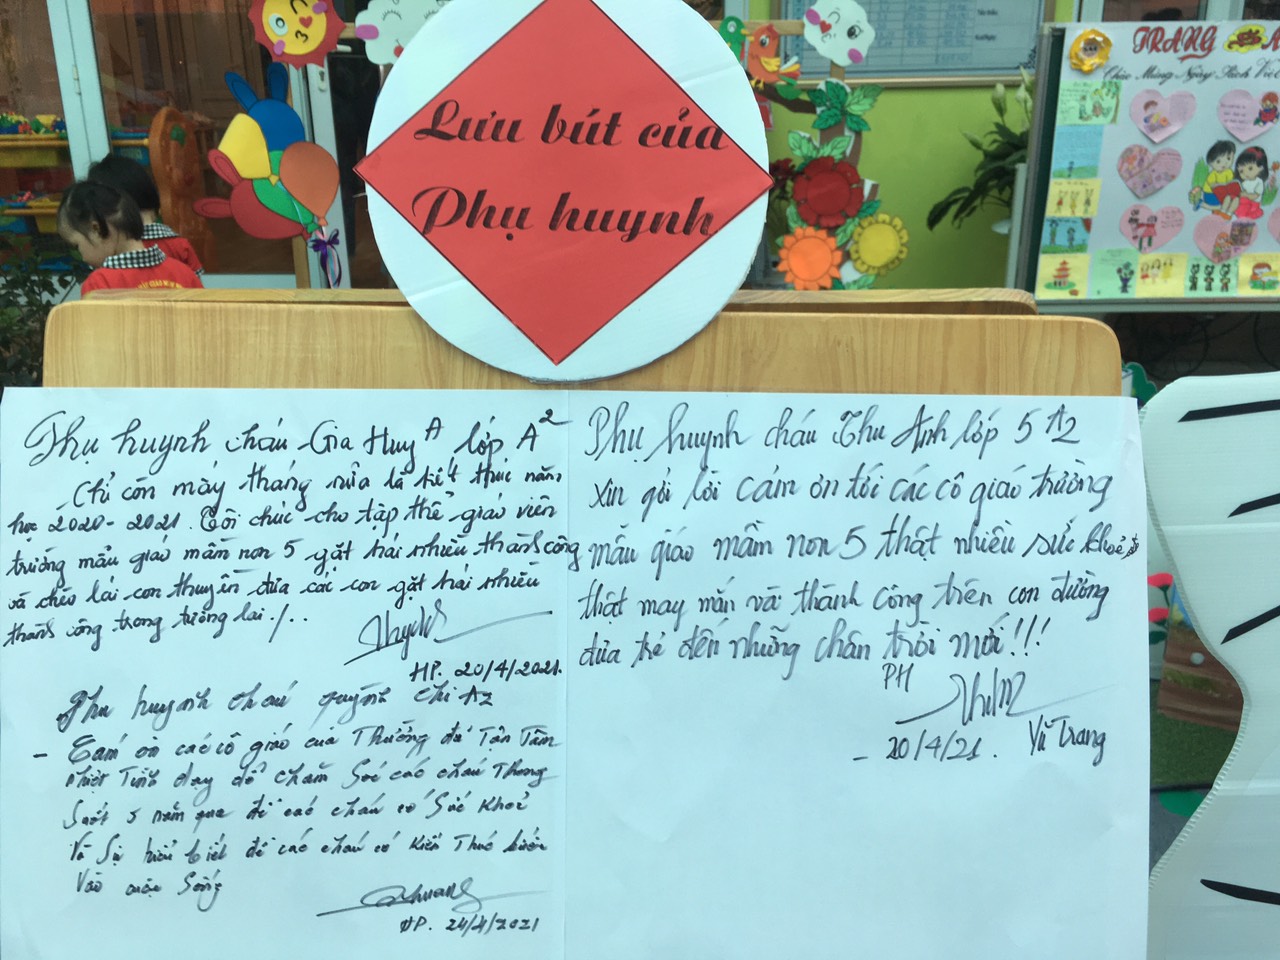 Lưu bút của
Phụ huynh
TRANG
Chúc Mừng Ngày Sách Việt
Phụ huynh cháu Gia Huy A lớp A2
Chỉ còn mấy tháng nữa là kết thúc năm
học 2020-2021. Tôi chúc cho tập thể giáo viên
trường mẫu giáo mầm non 5 gặt hái nhiều thành công
và chèo lái con thuyền đưa các con gặt hái nhiều
thành công trong tương lai./..
HP. 20/4/2021.
Phụ huynh cháu quỳnh chi A2
- Cảm ơn các cô giáo của Trường đã Tận Tâm
nhiệt Tình dạy dỗ chăm Sóc các cháu Trong
Suốt 3 năm qua để các cháu có Sức Khoẻ
Và Sự hiểu biết để các cháu có Kiến Thức bước
Vào cuộc Sống
HP. 24/4/2021
Phụ huynh cháu Thu Anh lớp 5 A2
xin gởi lời cám ơn tới các cô giáo trường
mẫu giáo mầm non 5 thật nhiều sức khoẻ
thật may mắn và thành công trên con đường
đưa trẻ đến những chân trời mới!!!
PH
- 20/4/21. Vũ Trang